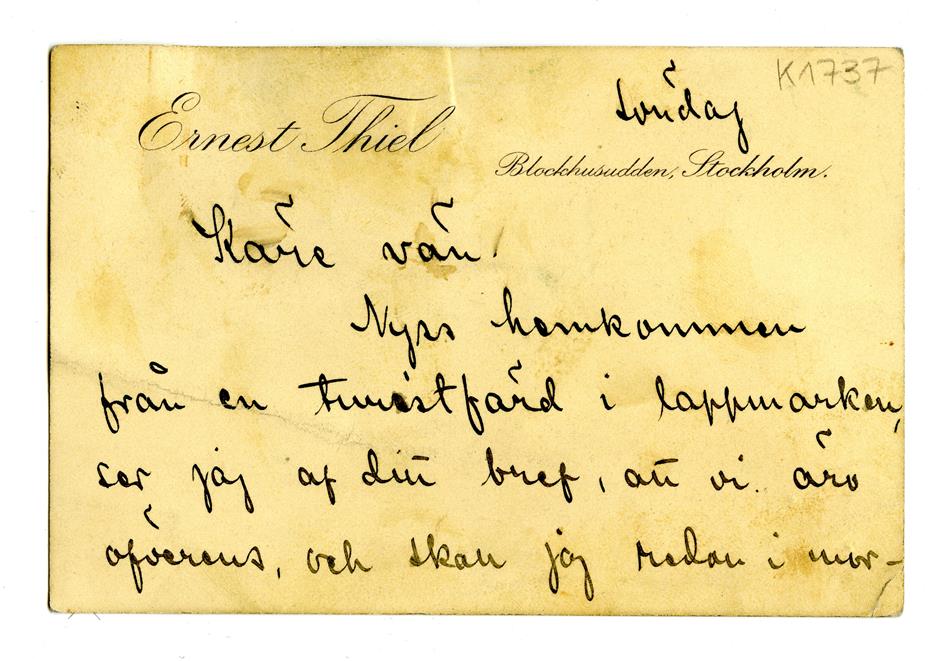 K1737
Söndag
Ernest Thiel
Blockhusudden, Stockholm.
Käre vän!
Nyss hemkommen
från en turistfärd i lappmarken,
ser jag af ditt bref, att vi äro
öfverens, och skall jag redan i mor-